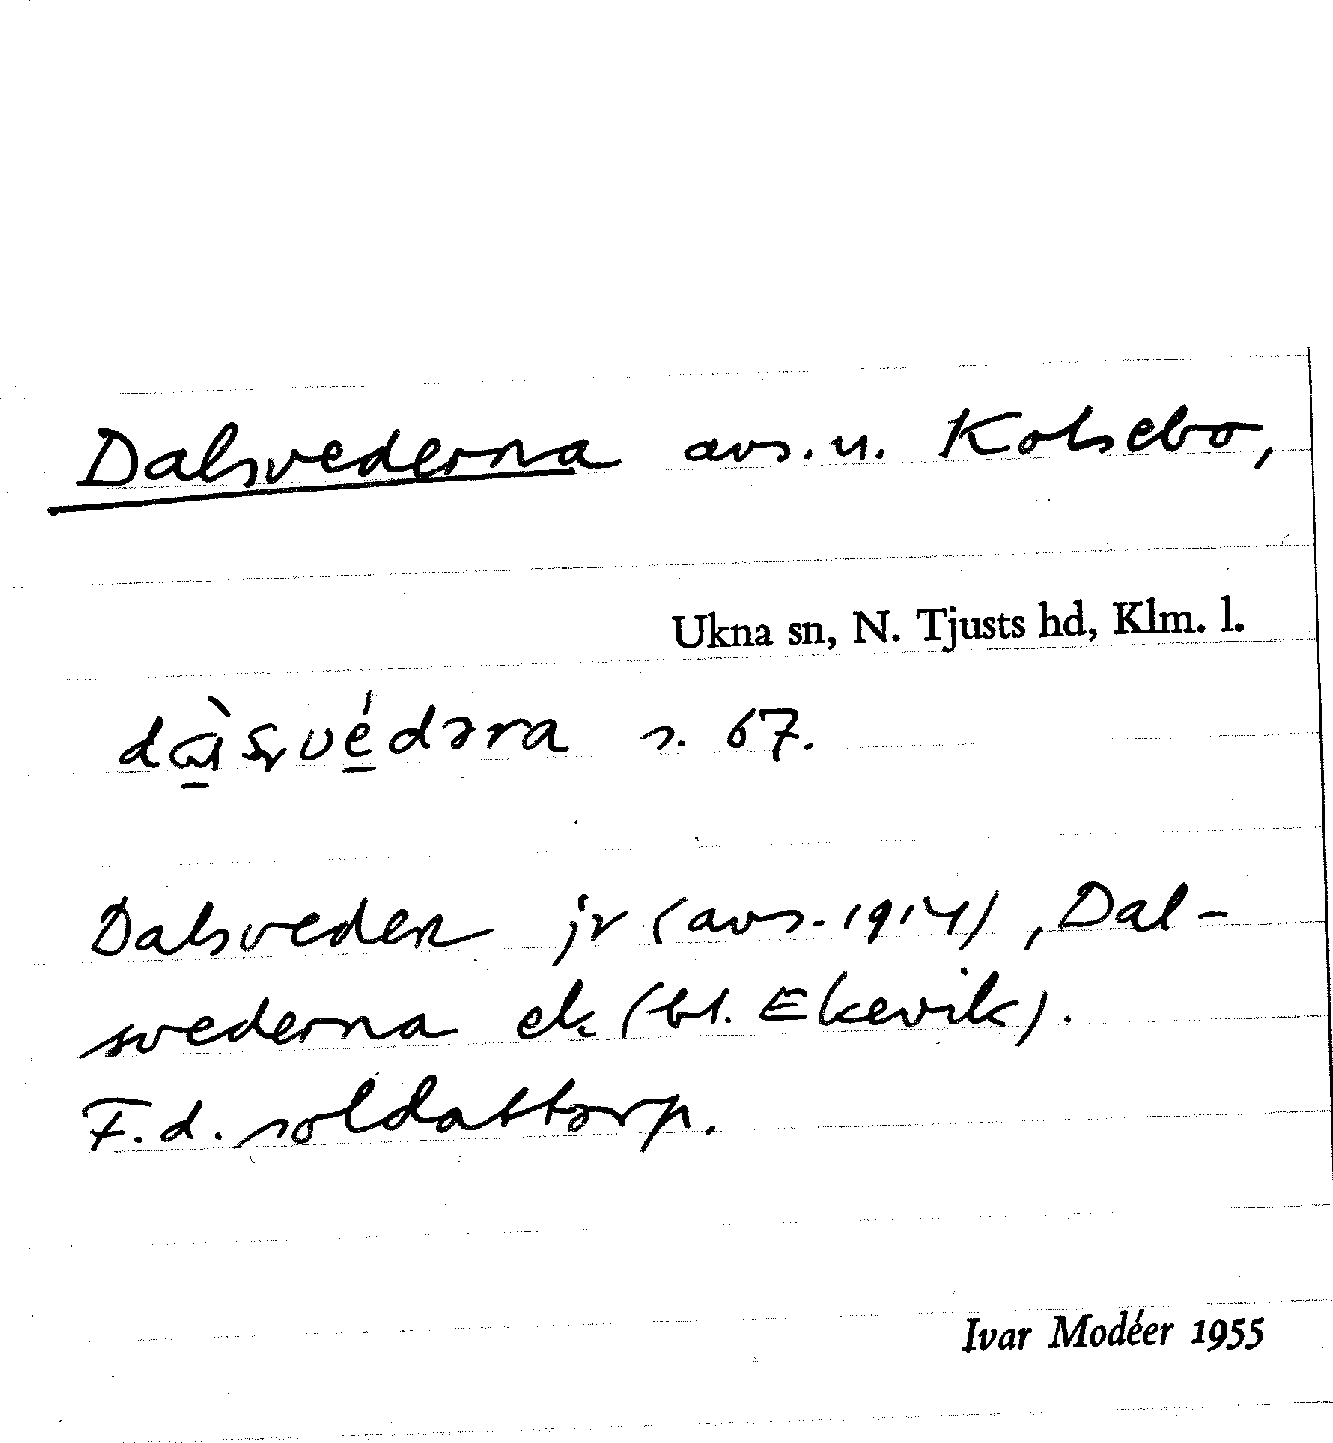 Dalsvederna avs. u. Kolsebo,
Ukna sn, N. Tjusts hd, Klm. l.
s. 67.
Dalsveden jr (avs. 1914), Dal-
svederna ek (bl. Ekevik).
F.d. soldattorp.
Ivar Modéer 1955